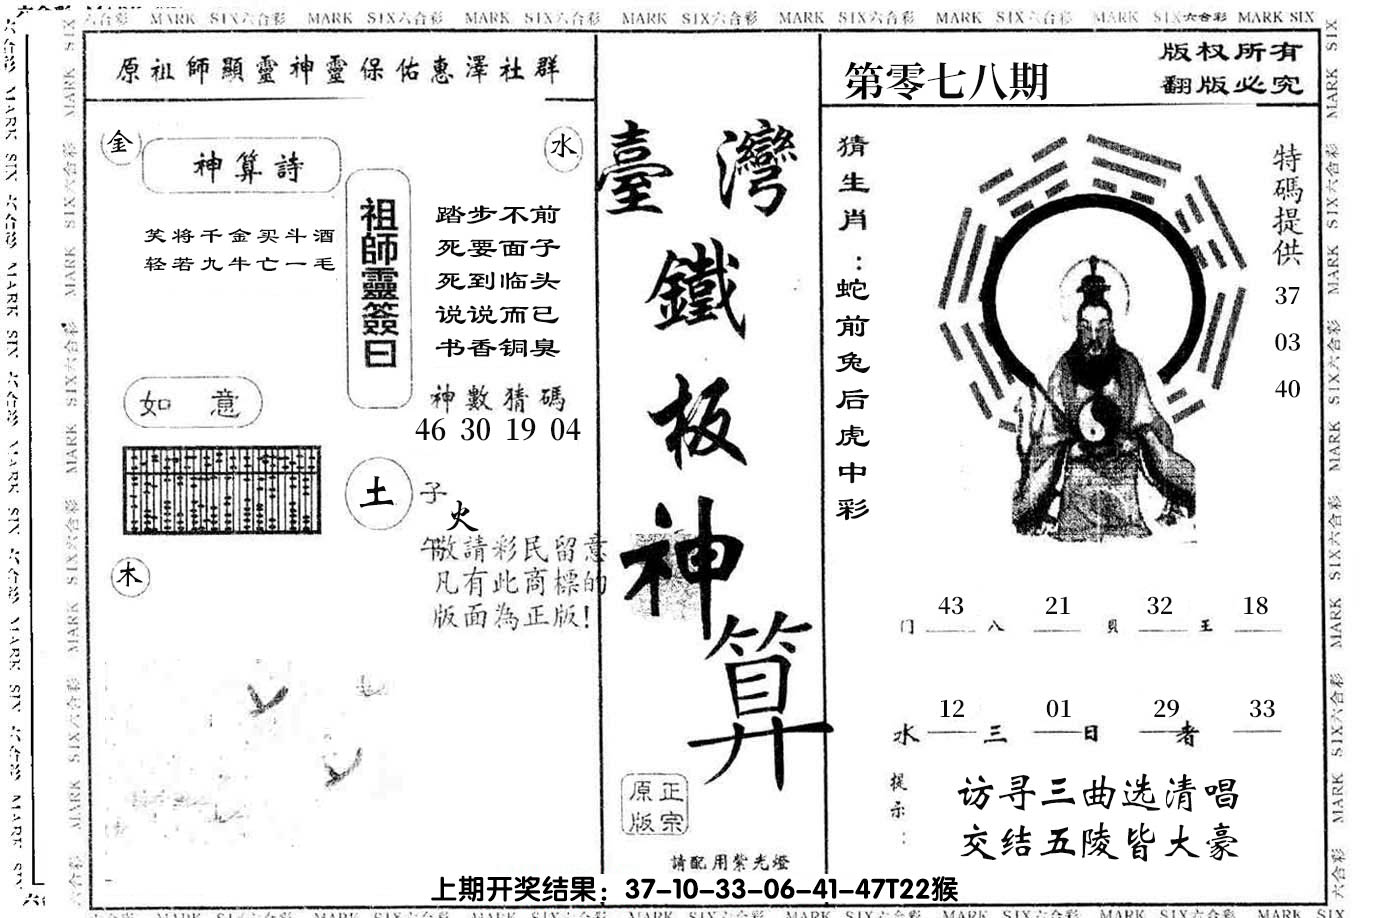 MARK SIX六合彩 MARK SIX六合彩 MARK SIX六合彩 MARK SIX六合彩 MARK SIX六合彩 MARK SIX六合彩 MARK SIX六合彩 MARK SIX
原祖師顯靈神靈保佑惠澤社群
第零七八期
版权所有
翻版必究
金
水
神算詩
笑将千金买斗酒
轻若九牛亡一毛
祖師靈簽曰
踏步不前
死要面子
死到临头
说说而已
书香铜臭
神數猜碼
46 30 19 04
如意
土
子
火
午
木
敬請彩民留意
凡有此商標的
版面為正版!
臺灣
鐵
板
神
算
正宗
原版
請配用紫光燈
猜生肖:蛇前兔后虎中彩
特碼提供
37
03
40
43 21 32 18
门 八 貝 王
12 01 29 33
水 三 日 者
提示:
访寻三曲选清唱
交结五陵皆大豪
上期开奖结果：37-10-33-06-41-47T22猴